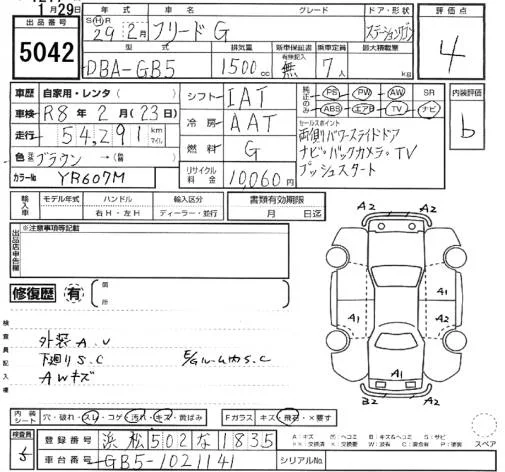 1月29日
年式 車名 グレード ドア・形状 評価点
出品番号 5042
S H R 29年 2月 フリード G ステーションワゴン 4
型式 排気量 新車保証 有無記入 乗車定員 最大積載量
DBA-GB5 1500cc 無 7人 kg
車歴 自家用・レンタ( ) シフト IAT 純正のみ PS PW AW SR 内装評価
車検 R8年 2月(23日) ABS エアB TV ナビ b
走行 54,291 km マイル 冷房 AAT セールスポイント
両側パワースライドドア
色 元色 ブラウン →(前 ) 燃料 G ナビ・バックカメラ・TV
カラーNo YR607M リサイクル料金 10,060円 プッシュスタート
輸入車 モデル年式 ハンドル 輸入区分 書類有効期限
年 右H・左H ディーラー・並行 月 日迄
出品店申告欄 ※注意事項等記載
修復歴 有 箇所
A2 A2
A1 A1 A2
A1
A2 A2
検査員記入欄
外装 A.U
下廻り S.C E/Gルーム内 S.C
AWキズ
内装シート 穴・破れ・スレ・コゲ・汚れ・キズ・黄ばみ Fガラス キズ・飛石・×要す
検査員 5 登録番号 浜松 502 な 1835
A:キズ U:ヘコミ B:キズ&ヘコミ S:サビ
スペア
車台番号 GB5-1021141 シリアルNo.